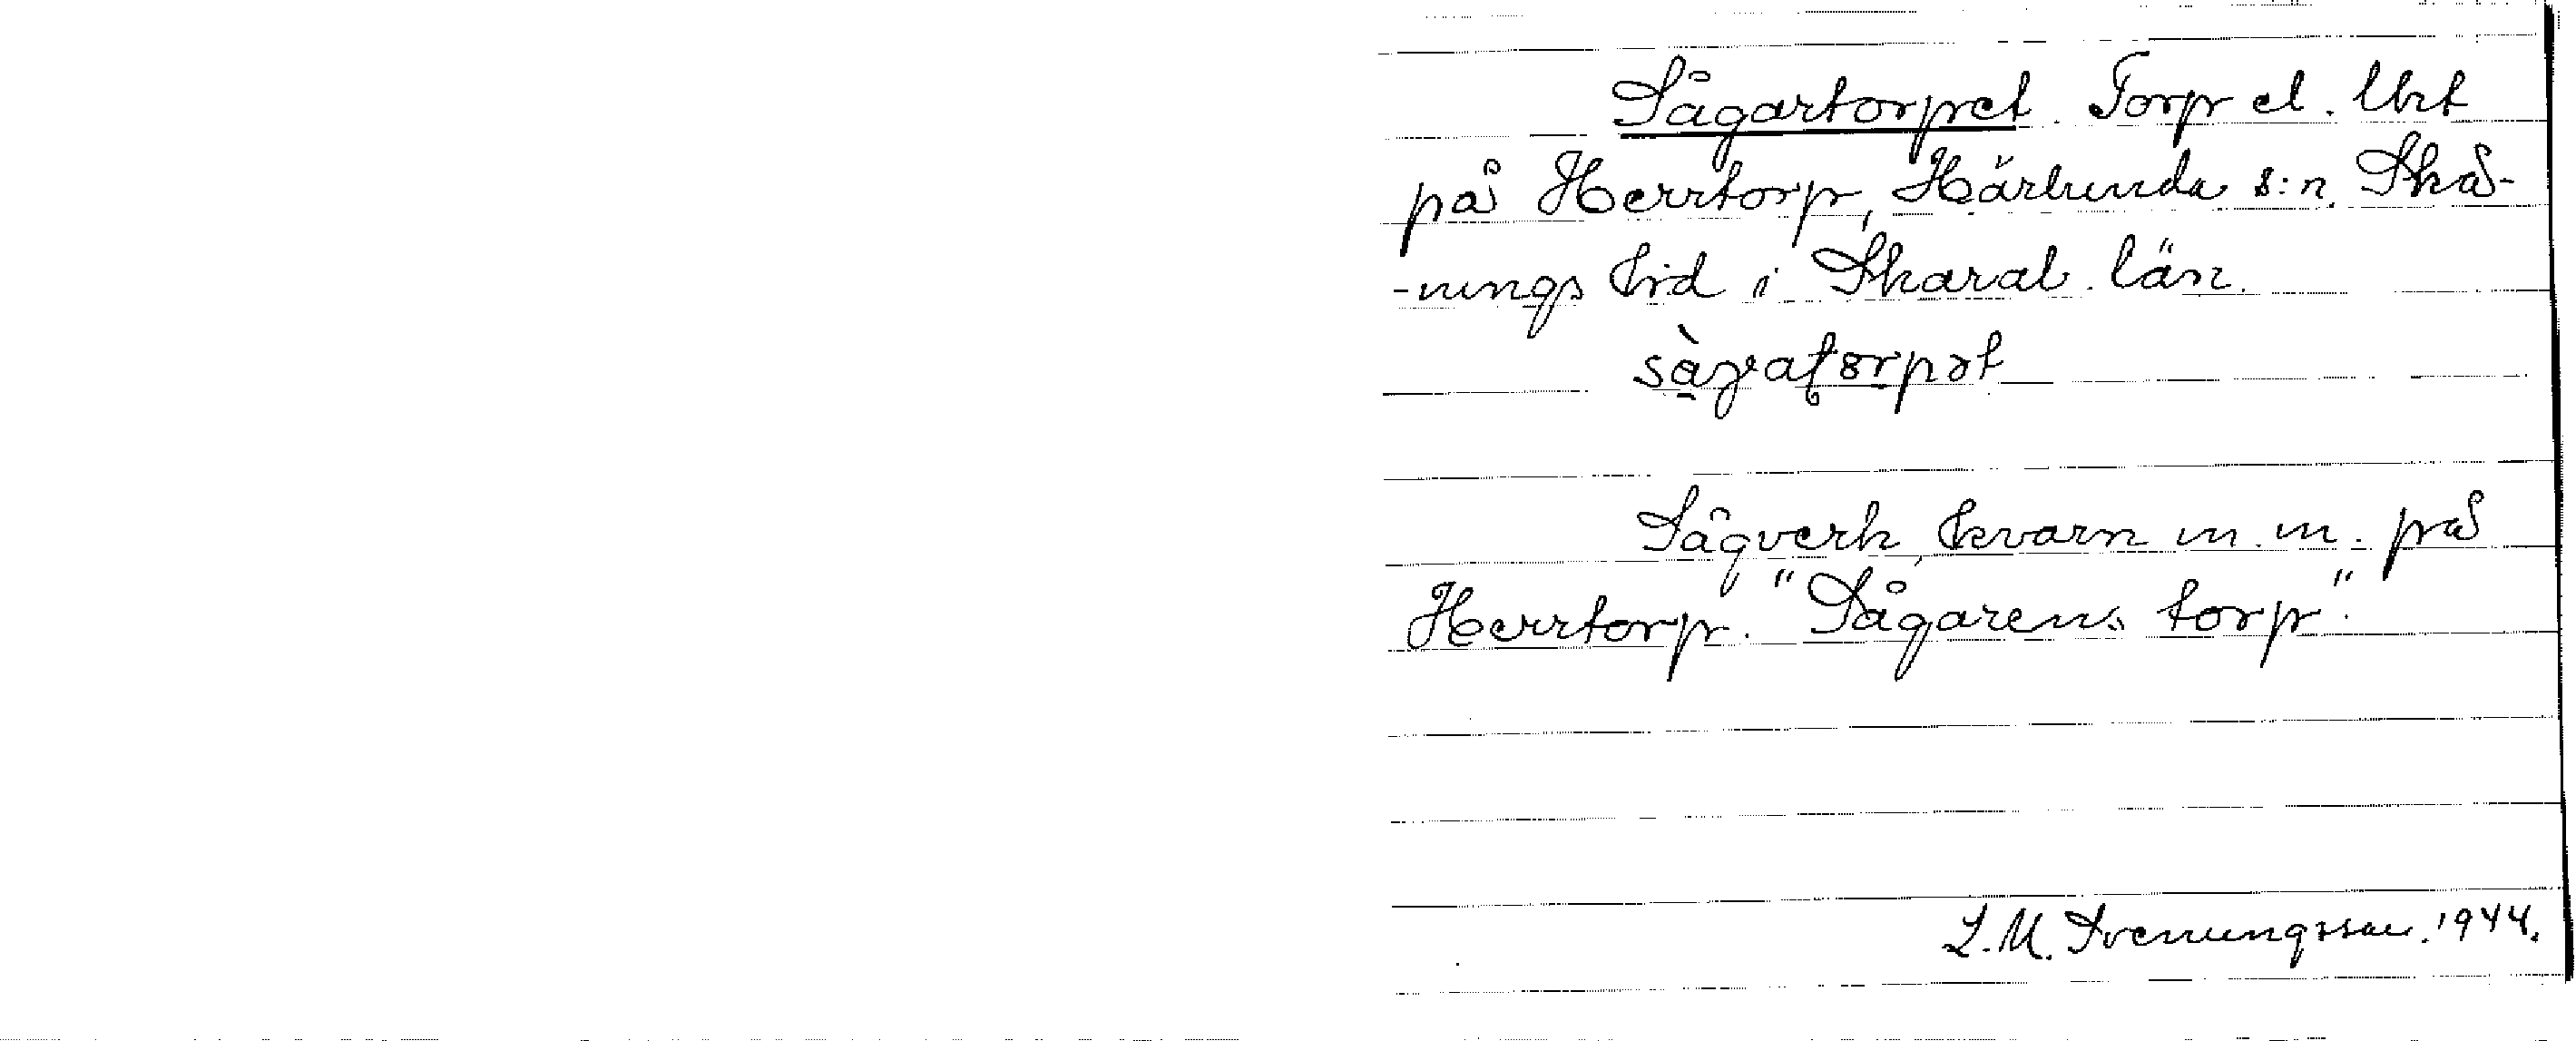 Sågartorpet. Torp el. lht
på Herrtorp, Härlunda s:n, Skå-
-nings hd i Skarab. län.
såɣatorpət
Sågverk, kvarn m.m. på
Herrtorp. "Sågarens torp".
L.M. Svenungsson. 1944.